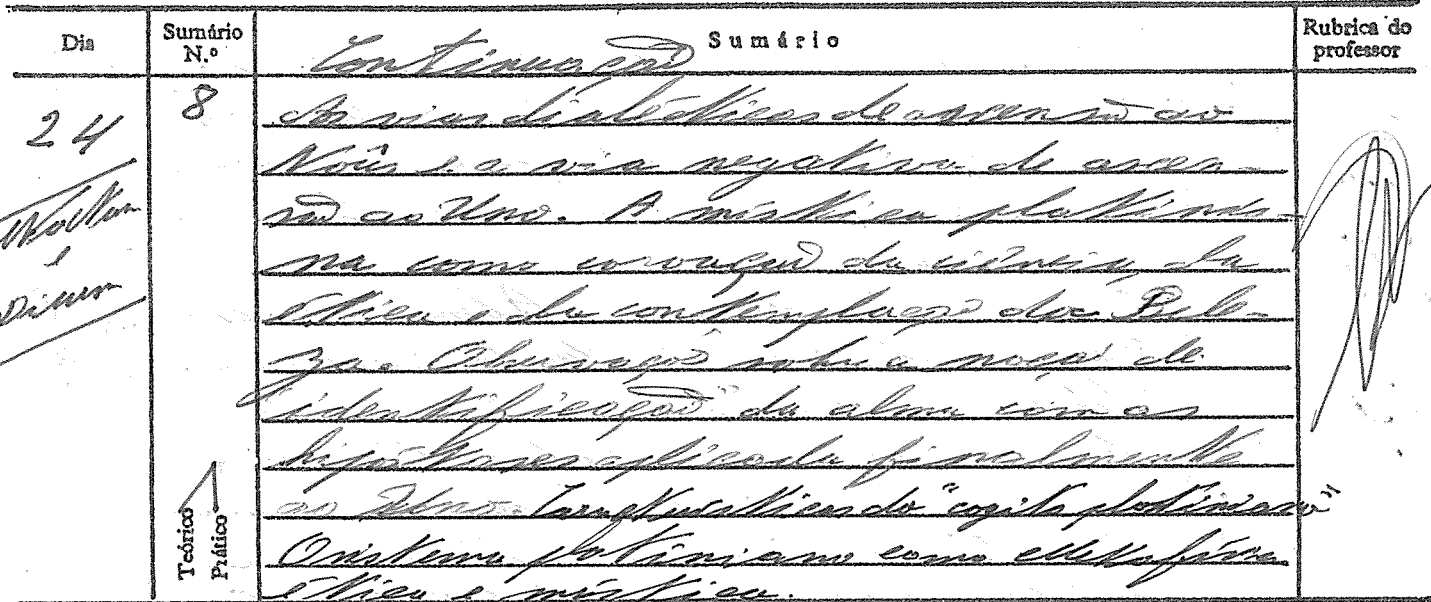 Dia
Sumário N.º
Sumário
Rubrica do professor
Continuação
24
8
As vias dialécticas de ascensão ao
Noûs e a via negativa de ascen-
são ao Uno. A mística plotinia-
na como coroação da ciência, da
ética e da contemplação da Bele-
za. Observações sobre a noção de
"identificação" da alma com as
hipóstases aplicada finalmente
ao Uno. Características do "cogito plotiniano"
O sistema plotiniano como
ética e mística.
Teórico
Prático